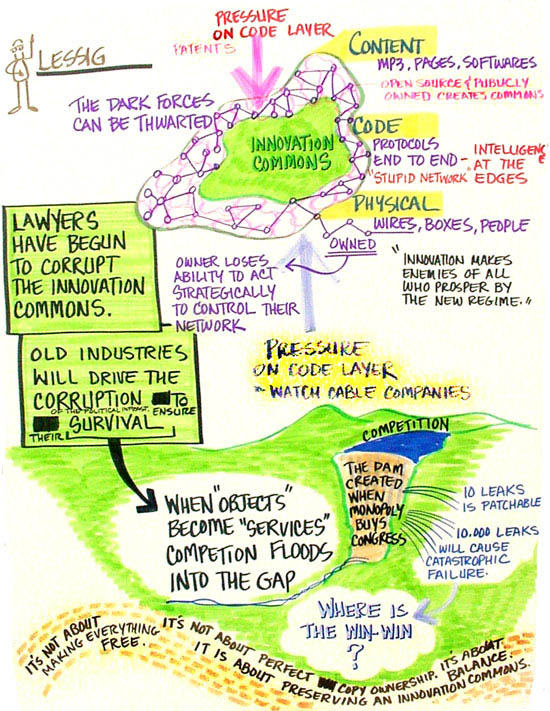 LESSIG
PRESSURE
ON CODE LAYER
PATENTS
THE DARK FORCES
CAN BE THWARTED
INNOVATION
COMMONS
CONTENT
MP3, PAGES, SOFTWARES
OPEN SOURCE & PUBLICLY
OWNED CREATES COMMONS
CODE
PROTOCOLS
END TO END -
"STUPID NETWORK"
INTELLIGENCE
AT THE
EDGES
PHYSICAL
WIRES, BOXES, PEOPLE
OWNED
OWNER LOSES
ABILITY TO ACT
STRATEGICALLY
TO CONTROL THEIR
NETWORK
"INNOVATION MAKES
ENEMIES OF ALL
WHO PROSPER BY
THE NEW REGIME."
LAWYERS
HAVE BEGUN
TO CORRUPT
THE INNOVATION
COMMONS.
OLD INDUSTRIES
WILL DRIVE THE
CORRUPTION TO
OF THE POLITICAL ENSURE
THEIR SURVIVAL
PRESSURE
ON CODE LAYER
- WATCH CABLE COMPANIES
COMPETITION
THE DAM
CREATED
WHEN
MONOPOLY
BUYS
CONGRESS
10 LEAKS
IS PATCHABLE
10.000 LEAKS
WILL CAUSE
CATASTROPHIC
FAILURE.
WHEN "OBJECTS"
BECOME "SERVICES"
COMPETION FLOODS
INTO THE GAP
WHERE IS
THE WIN-WIN
?
IT'S NOT ABOUT
MAKING EVERYTHING
FREE.
IT'S NOT ABOUT PERFECT COPY OWNERSHIP. IT'S ABOUT
BALANCE.
IT IS ABOUT PRESERVING AN INNOVATION COMMONS.